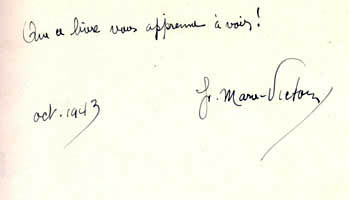 Que ce livre vous apprenne à voir!
oct. 1943
fr. Marie-Victorin